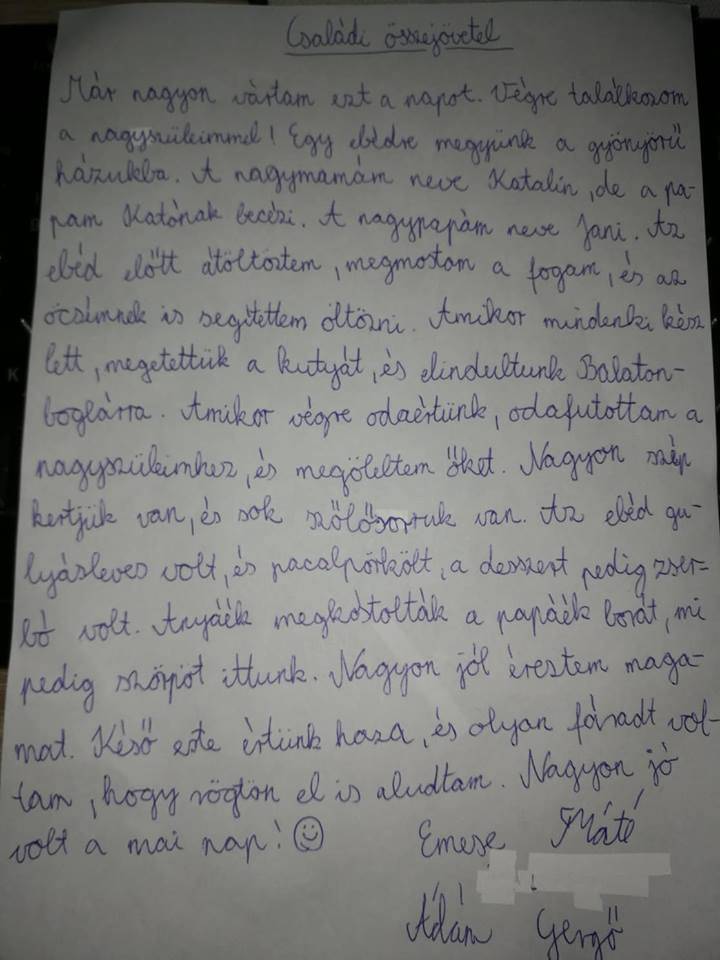 Családi összejövetel
Már nagyon vártam ezt a napot. Végre találkozom
a nagyszüleimmel! Egy ebédre megyünk a gyönyörű
házukba. A nagymamám neve Katalin, de a pa-
pam Katónak becézi. A nagypapám neve Jani. Az
ebéd előtt átöltöztem, megmostam a fogam, és az
öcsémnek is segítettem öltözni. Amikor mindenki kész
lett, megetettük a kutyát, és elindultunk Balaton-
boglárra. Amikor végre odaértünk, odafutottam a
nagyszüleimhez, és megöleltem őket. Nagyon szép
kertjük van, és sok szőlősorruk van. Az ebéd gu-
lyásleves volt, és pacalpörkölt, a desszert pedig zser-
bó volt. Anyáék megkóstolták a papáék borát, mi
pedig szörpöt ittunk. Nagyon jól éreztem maga-
mat. Késő este értünk haza, és olyan fáradt vol-
tam, hogy rögtön el is aludtam. Nagyon jó
volt a mai nap! ☺
Emese Máté
Ádám Gergő